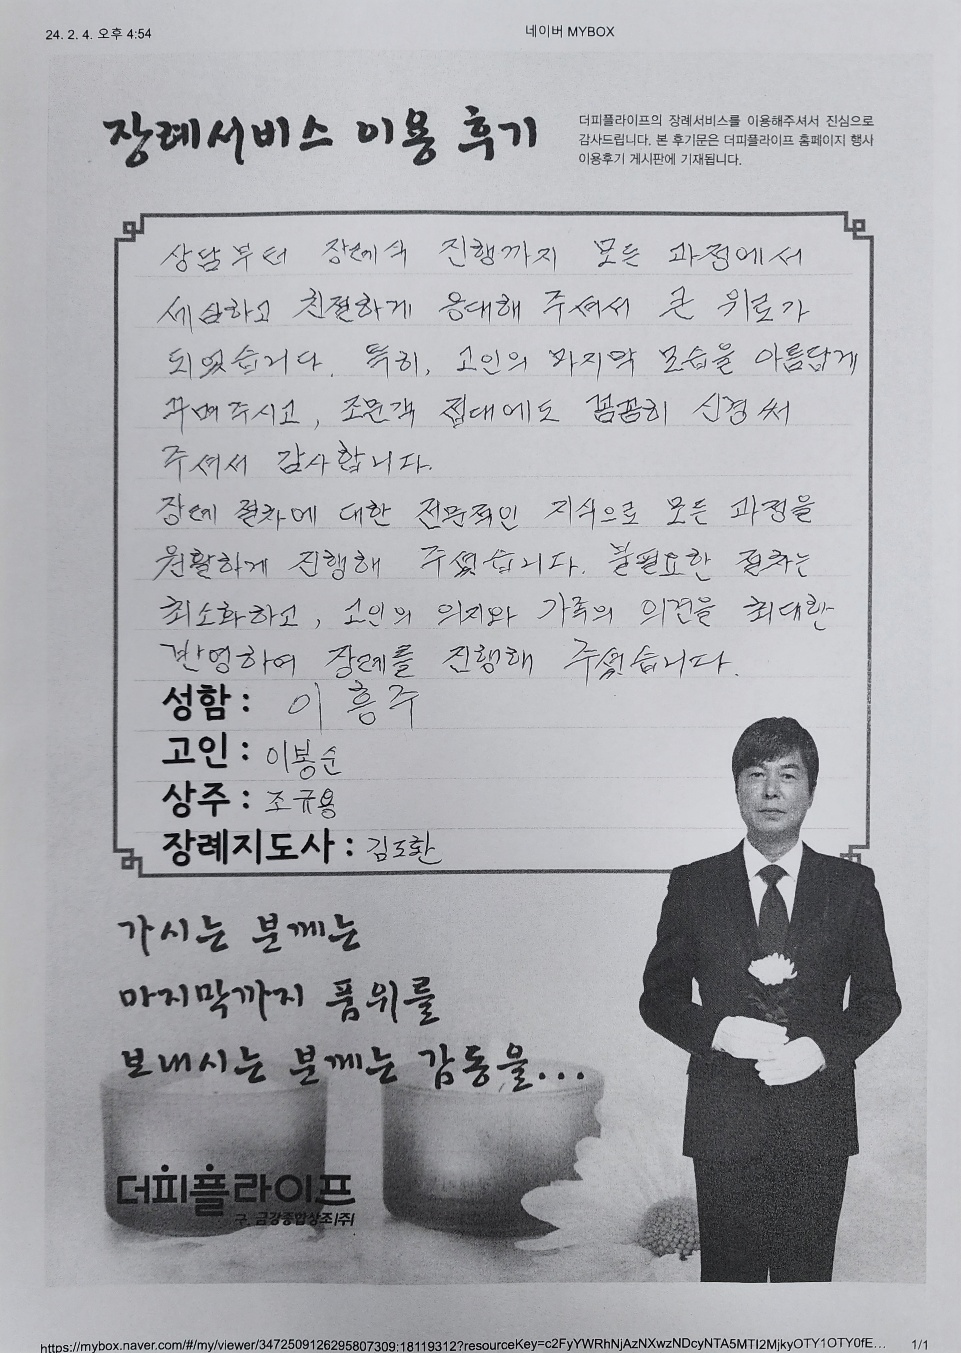 24. 2. 4. 오후 4:54
네이버 MYBOX
장례서비스 이용 후기
더피플라이프의 장례서비스를 이용해주셔서 진심으로
감사드립니다. 본 후기문은 더피플라이프 홈페이지 행사
이용후기 게시판에 기재됩니다.
상담부터 장례식 진행까지 모든 과정에서
세심하고 친절하게 응대해 주셔서 큰 위로가
되었습니다. 특히, 고인의 마지막 모습을 아름답게
꾸며주시고, 조문객 접대에도 꼼꼼히 신경써
주셔서 감사합니다.
장례 절차에 대한 전문적인 지식으로 모든 과정을
원활하게 진행해 주셨습니다. 불필요한 절차는
최소화하고, 고인의 의지와 가족의 의견을 최대한
반영하여 장례를 진행해 주셨습니다.
성함 : 이흥주
고인 : 이봉순
상주 : 조규용
장례지도사 : 김도환
가시는 분께는
마지막까지 품위를
보내시는 분께는 감동을...
더피플라이프
구. 금강종합상조(주)
https://mybox.naver.com/#/my/viewer/3472509126295807309:18119312?resourceKey=c2FyYWRhNjAzNXwzNDcyNTA5MTI2MjkyOTY1OTY0fE...
1/1